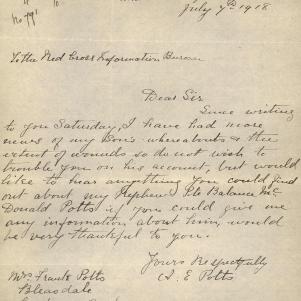 No 791
July 7th 1918
To the Red Cross Information Bureau
Dear Sir
Since writing
to you Saturday, I have had more
news of my Son's whereabouts & the
extent of wounds so do not wish to
trouble you on his account, but would
like to hear anything you could find
out about my Nephew Pte Balance Mc
Donald Potts if you could give me
any information about him, would
be very thankful to you.
Yours Respectfully
E Potts
Mrs Frank Potts
Bleasdale